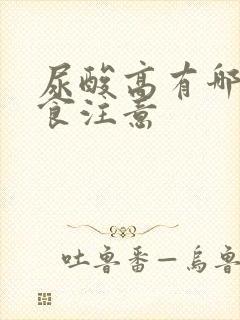 尿酸高有哪
食注意
吐鲁番—乌鲁